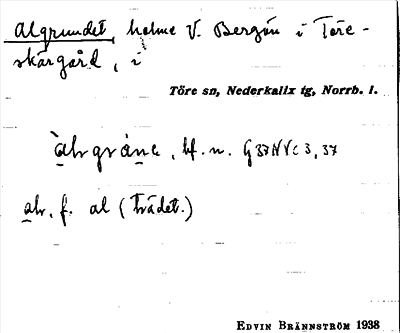 Algrundet, holme V. Bergön i Töre-
skärgård, i
Töre sn, Nederkalix tg, Norrb. l.
àlrgrànɐ, bf. n. G 37 NVc 3, 37
alr, f. al (trädet.)
EDVIN BRÄNNSTRÖM 1938